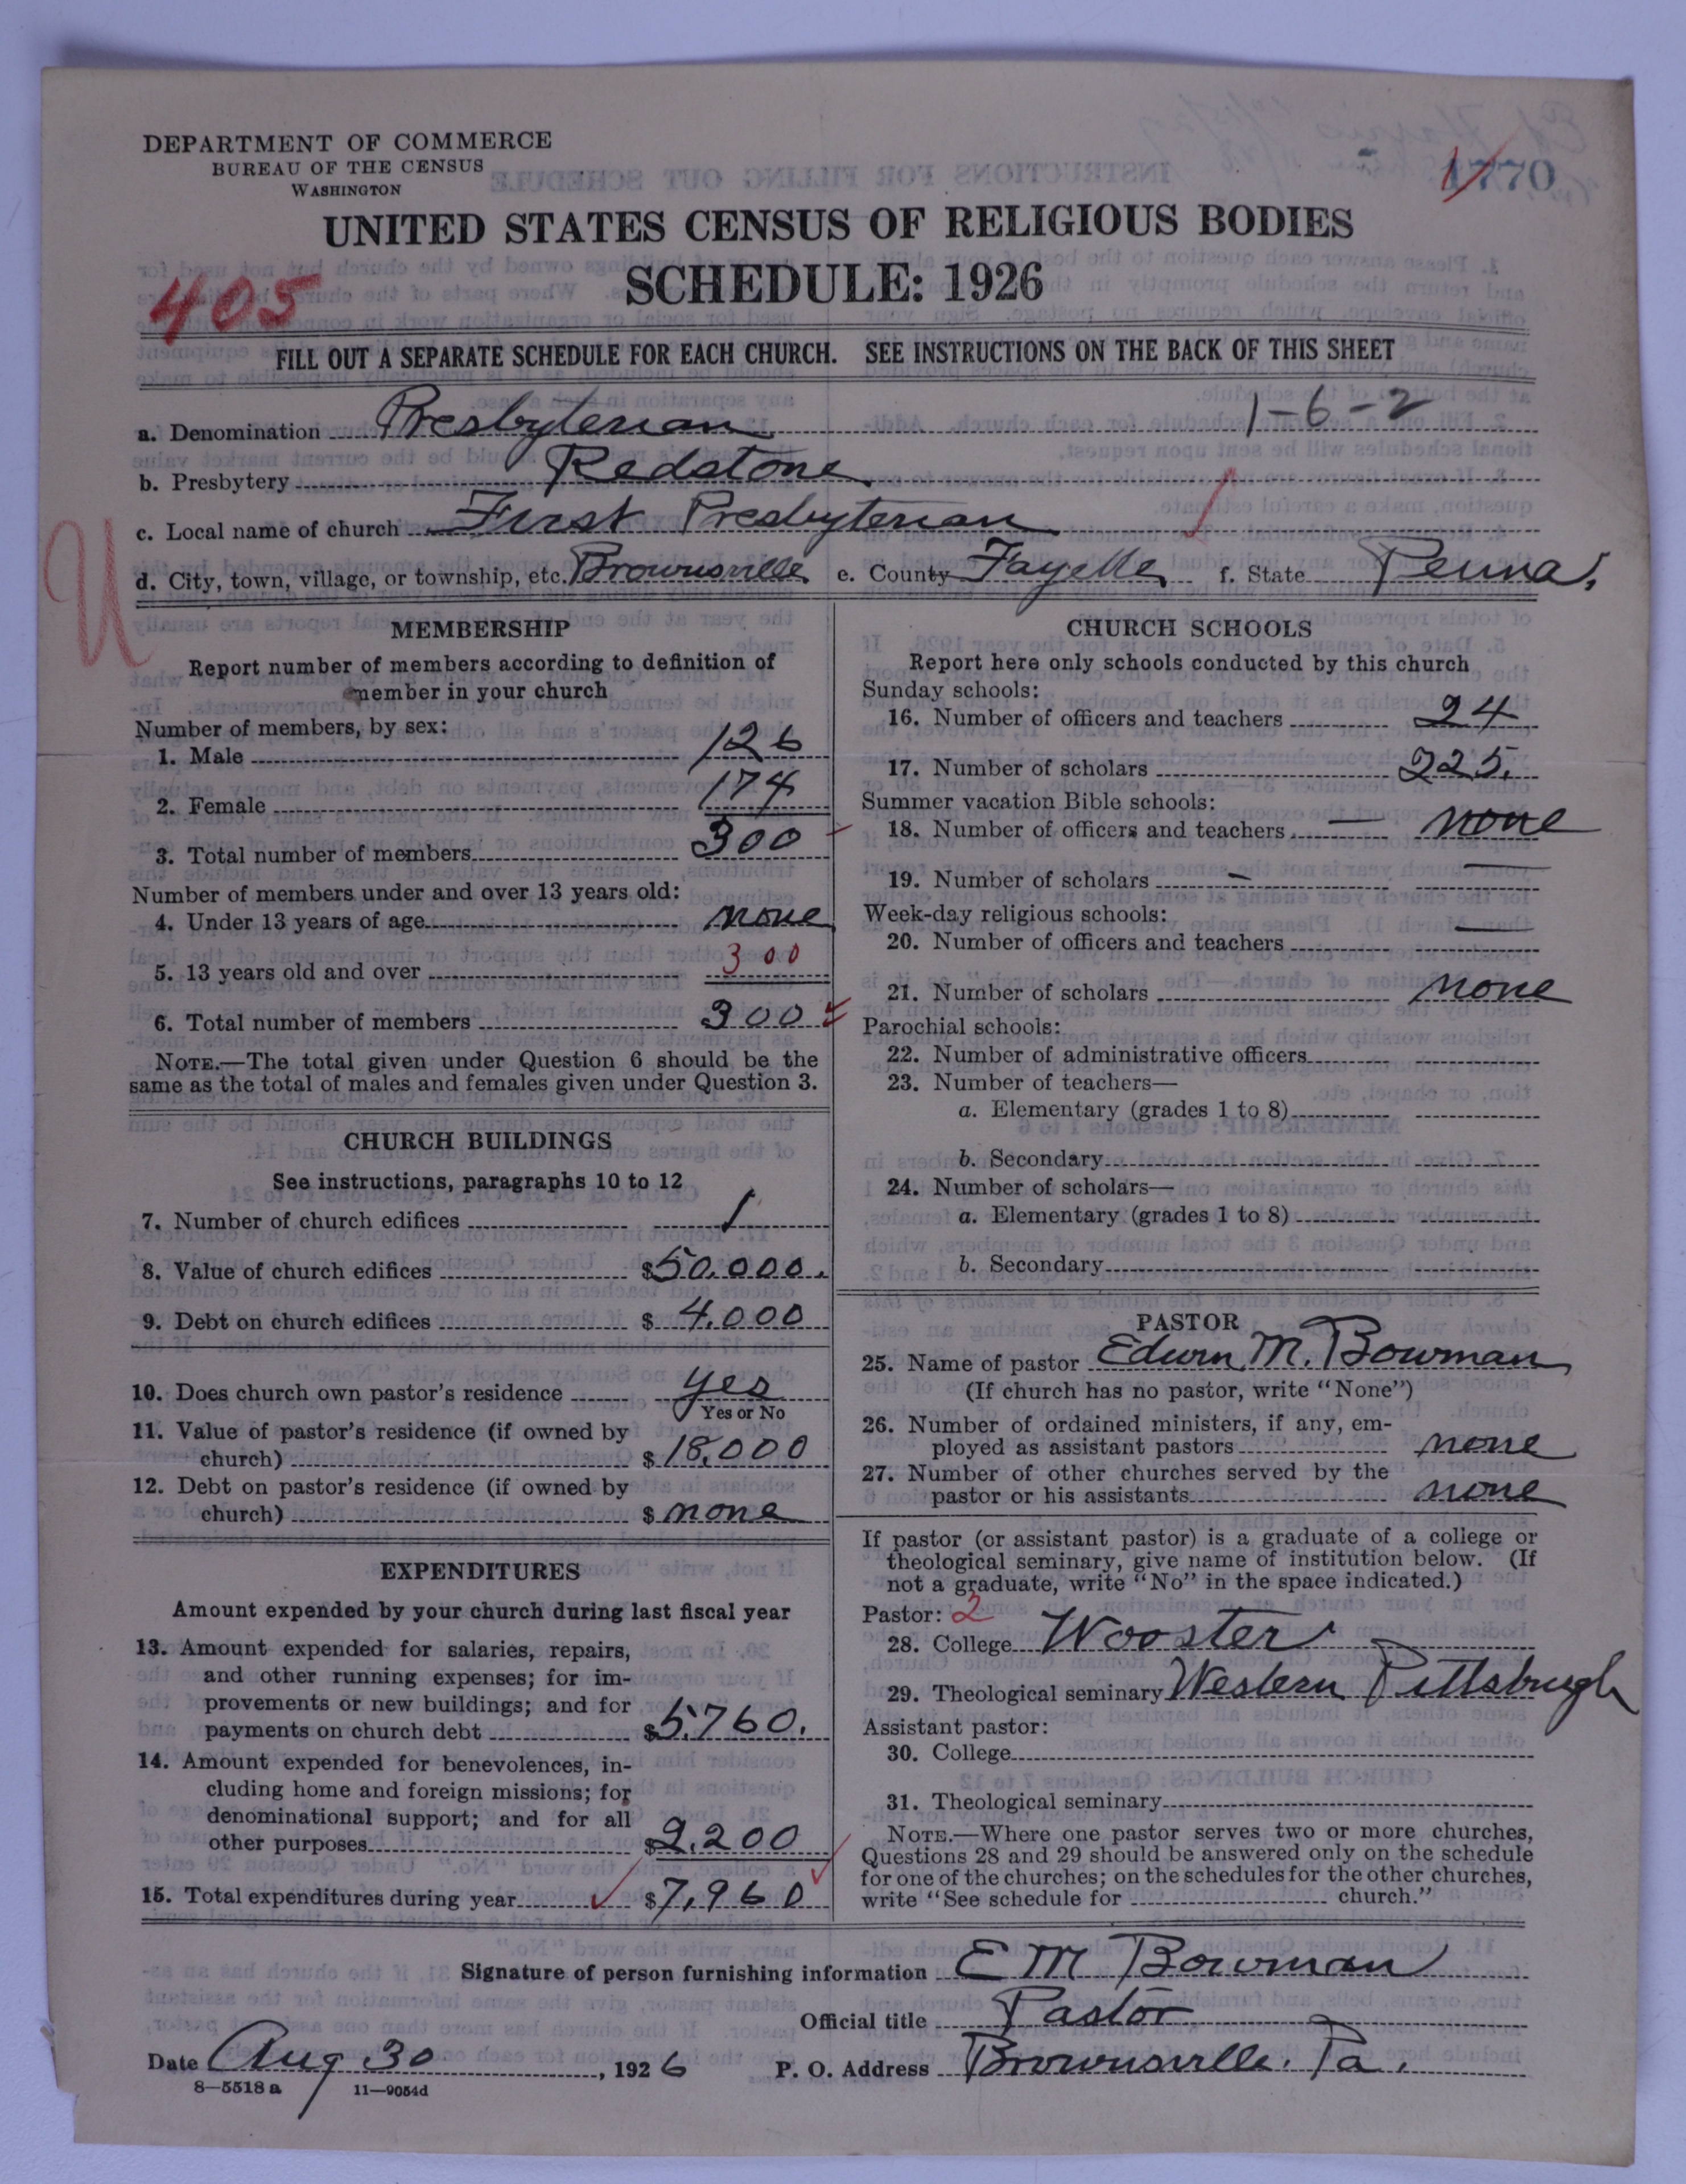 DEPARTMENT OF COMMERCE
BUREAU OF THE CENSUS
WASHINGTON
1770
UNITED STATES CENSUS OF RELIGIOUS BODIES
SCHEDULE: 1926
405
FILL OUT A SEPARATE SCHEDULE FOR EACH CHURCH. SEE INSTRUCTIONS ON THE BACK OF THIS SHEET
1-6-2
a. Denomination Presbyterian
b. Presbytery Redstone
c. Local name of church First Presbyterian
U
d. City, town, village, or township, etc. Brownsville e. County Fayette f. State Penna.
MEMBERSHIP
Report number of members according to definition of
member in your church
Number of members, by sex:
1. Male 126
2. Female 174
3. Total number of members 300
Number of members under and over 13 years old:
4. Under 13 years of age none
5. 13 years old and over 300
6. Total number of members 300
NOTE.—The total given under Question 6 should be the
same as the total of males and females given under Question 3.
CHURCH BUILDINGS
See instructions, paragraphs 10 to 12
7. Number of church edifices 1
8. Value of church edifices $50,000.
9. Debt on church edifices $ 4,000
10. Does church own pastor's residence yes
Yes or No
11. Value of pastor's residence (if owned by
church) $18,000
12. Debt on pastor's residence (if owned by
church) $ none
EXPENDITURES
Amount expended by your church during last fiscal year
13. Amount expended for salaries, repairs,
and other running expenses; for im-
provements or new buildings; and for
payments on church debt $5,760.
14. Amount expended for benevolences, in-
cluding home and foreign missions; for
denominational support; and for all
other purposes $2,200
15. Total expenditures during year $7,960
CHURCH SCHOOLS
Report here only schools conducted by this church
Sunday schools:
16. Number of officers and teachers 24
17. Number of scholars 225.
Summer vacation Bible schools:
18. Number of officers and teachers none
19. Number of scholars
Week-day religious schools:
20. Number of officers and teachers
21. Number of scholars none
Parochial schools:
22. Number of administrative officers
23. Number of teachers—
a. Elementary (grades 1 to 8)
b. Secondary
24. Number of scholars—
a. Elementary (grades 1 to 8)
b. Secondary
PASTOR
25. Name of pastor Edwin M. Bowman
(If church has no pastor, write "None")
26. Number of ordained ministers, if any, em-
ployed as assistant pastors none
27. Number of other churches served by the
pastor or his assistants none
If pastor (or assistant pastor) is a graduate of a college or
theological seminary, give name of institution below. (If
not a graduate, write "No" in the space indicated.)
Pastor: 2
28. College Wooster
29. Theological seminary Western Pittsbrugh
Assistant pastor:
30. College
31. Theological seminary
NOTE.—Where one pastor serves two or more churches,
Questions 28 and 29 should be answered only on the schedule
for one of the churches; on the schedules for the other churches,
write "See schedule for church."
Signature of person furnishing information E M Bowman
Official title Pastor
Date Aug 30, 1926 P. O. Address Brownsville. Pa.
8—5518 a 11—9054d